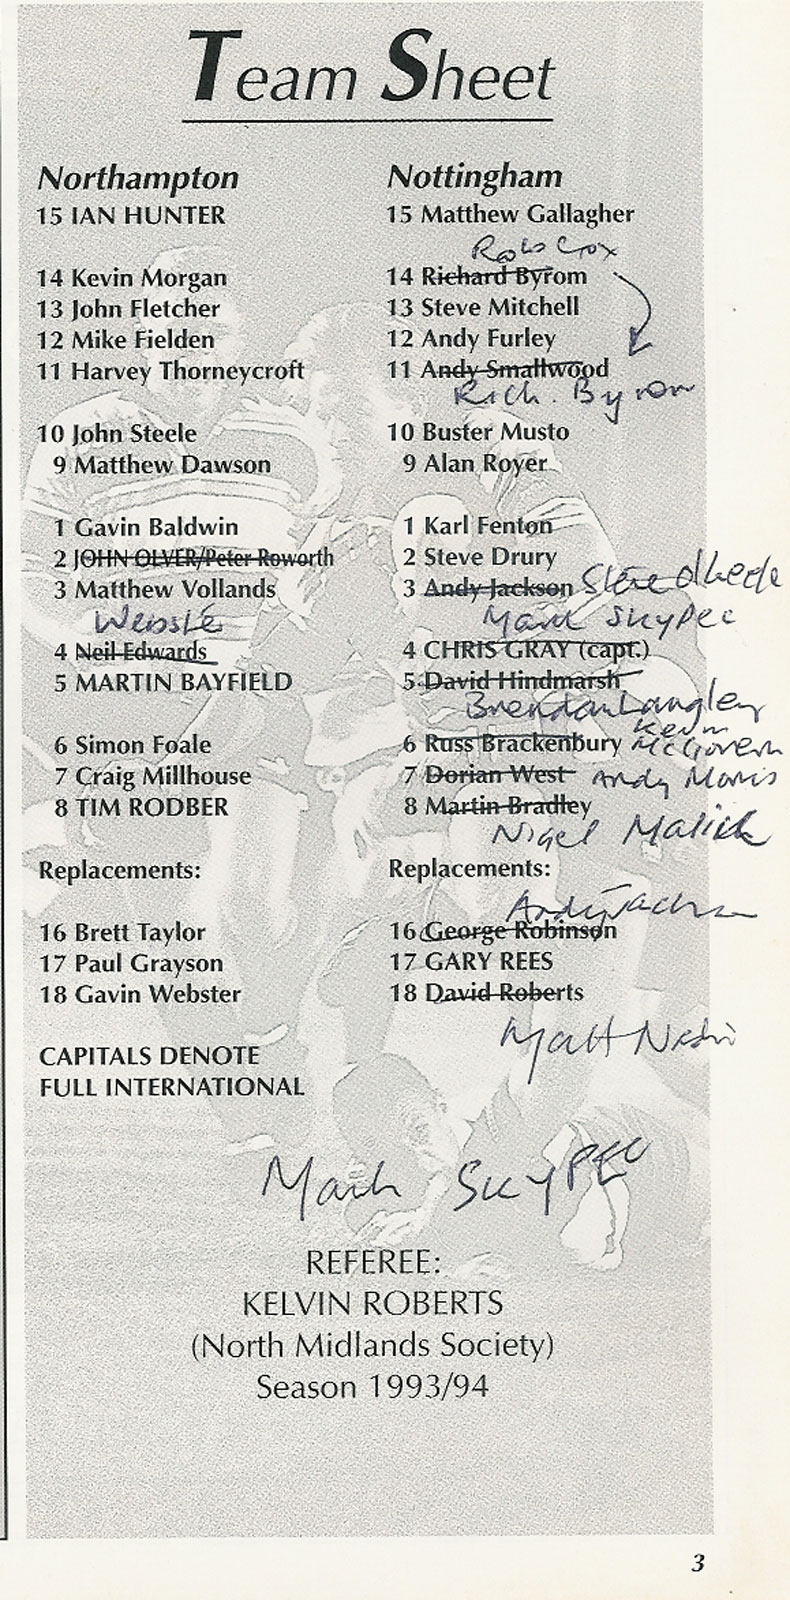 Team Sheet
Northampton
15 IAN HUNTER
14 Kevin Morgan
13 John Fletcher
12 Mike Fielden
11 Harvey Thorneycroft
10 John Steele
9 Matthew Dawson
1 Gavin Baldwin
2 JOHN OLVER/Peter Roworth
3 Matthew Vollands
Webster
4 Neil Edwards
5 MARTIN BAYFIELD
6 Simon Foale
7 Craig Millhouse
8 TIM RODBER
Replacements:
16 Brett Taylor
17 Paul Grayson
18 Gavin Webster
CAPITALS DENOTE
FULL INTERNATIONAL
Nottingham
15 Matthew Gallagher
14 Richard Byrom
13 Steve Mitchell
12 Andy Furley
11 Andy Smallwood
Rich. Byrom
10 Buster Musto
9 Alan Royer
1 Karl Fenton
2 Steve Drury
3 Andy Jackson
Mark Skypec
4 CHRIS GRAY (capt.)
5 David Hindmarsh
Brendan Langley
Kevin
6 Russ Brackenbury McGovern
7 Dorian West Andy Morris
8 Martin Bradley
Nigel Malik
Replacements:
Andy Jackson
16 George Robinson
17 GARY REES
18 David Roberts
Matt
Mark SKYPEC
REFEREE:
KELVIN ROBERTS
(North Midlands Society)
Season 1993/94
3